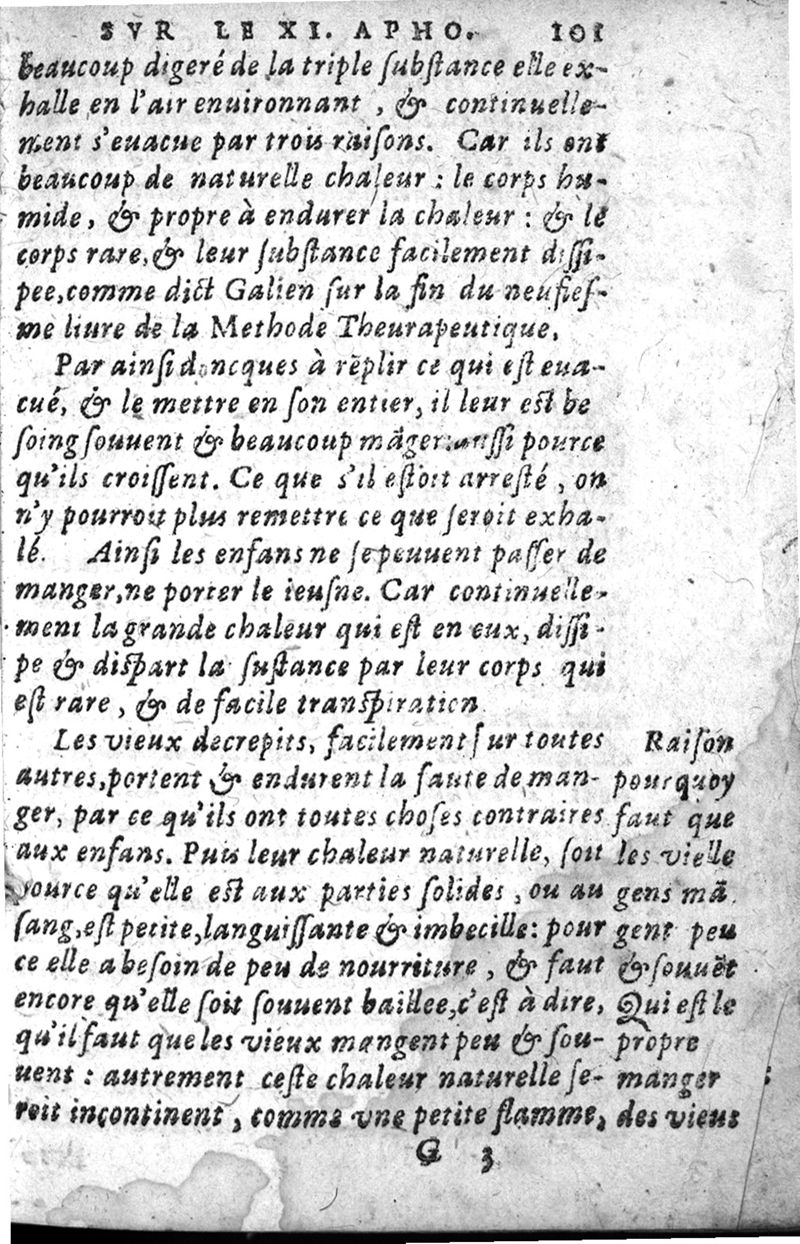 SVR LE XI. APHO. 101
beaucoup digeré de la triple ſubſtance elle ex-
halle en l'air enuironnant, & continuelle-
ment s'euacue par trois raiſons. Car ils ont
beaucoup de naturelle chaleur : le corps hu-
mide, & propre à endurer la chaleur : & le
corps rare, & leur ſubſtance facilement diſſi-
pee, comme dict Galien ſur la fin du neufieſ-
me liure de la Methode Theurapeutique.
Par ainſi doncques à rēplir ce qui eſt eua-
cué, & le mettre en ſon entier, il leur est be
ſoing ſouuent & beaucoup māger: auſſi pource
qu'ils croiſſent. Ce que s'il eſtoit arreſté, on
n'y pourroit plus remettre ce que ſeroit exha-
lé. Ainſi les enfans ne ſe peuuent paſſer de
manger, ne porter le ieuſne. Car continuelle-
ment la grande chaleur qui eſt en eux, diſſi-
pe & diſpart la ſuſtance par leur corps qui
eſt rare, & de facile tranſpiration
Les vieux decrepits, facilement ſur toutes
autres, portent & endurent la faute de man-
ger, par ce qu'ils ont toutes choſes contraires
aux enfans. Puis leur chaleur naturelle, ſoit
pource qu'elle est aux parties ſolides, ou au
ſang, eſt petite, languiſſante & imbecille: pour
ce elle a beſoin de peu de nourriture, & faut
encore qu'elle ſoit ſouuent baillee, c'eſt à dire,
qu'il faut que les vieux mangent peu & ſou-
uent : autrement ceſte chaleur naturelle ſe-
roit incontinent, comme vne petite flamme,
Raiſon
pourquoy
faut que
les vielle
gens mā
gent peu
& ſouuēt
Qui eſt le
propre
manger
des vieus
G 3